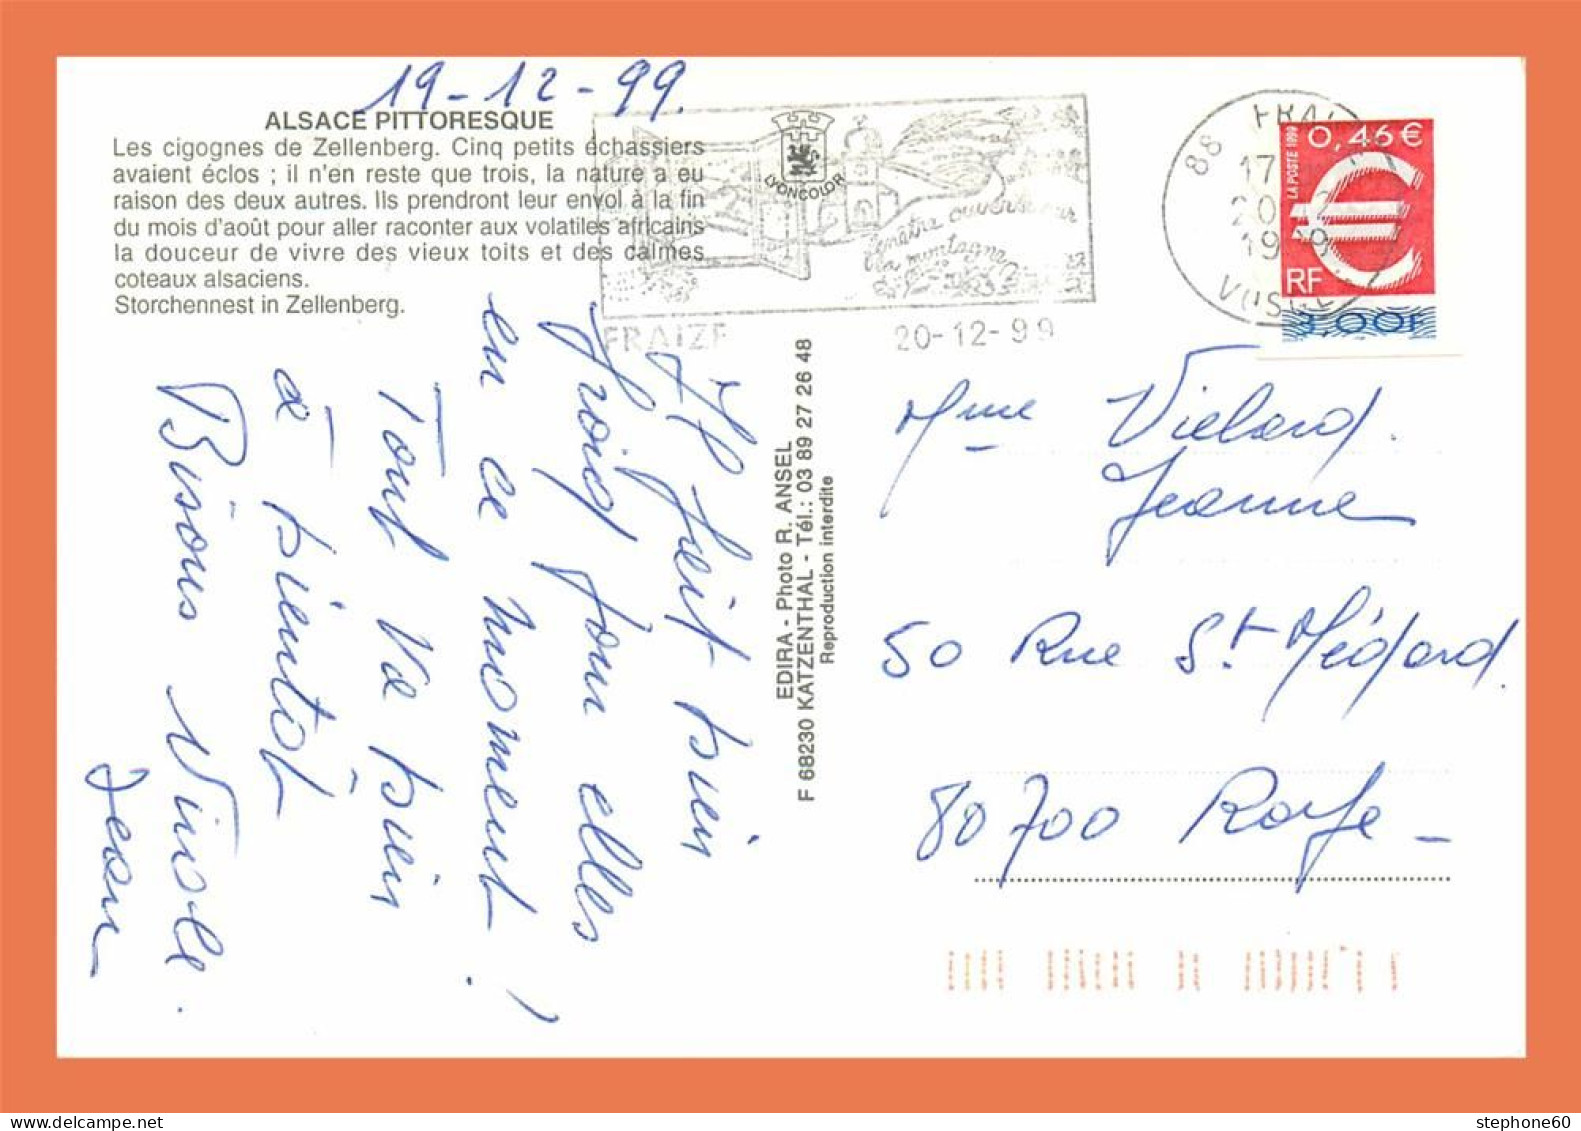 19-12-99.
ALSACE PITTORESQUE
Les cigognes de Zellenberg. Cinq petits échassiers
avaient éclos ; il n'en reste que trois, la nature a eu
raison des deux autres. Ils prendront leur envol à la fin
du mois d'août pour aller raconter aux volatiles africains
la douceur de vivre des vieux toits et des calmes
coteaux alsaciens.
Storchennest in Zellenberg.
LYONCOLOR
fenêtre ouverte sur
la montagne
FRAIZE
20-12-99
88 FRAI
17
20
19 9
VOSGE
LA POSTE 1999
0,46 €
€
RF
3,00F
Il fait bien
froid pour elles
en ce moment !
Tout va bien
à bientôt
Bisous
Jean
EDIRA - Photo R. ANSEL
F 68230 KATZENTHAL - Tél.: 03 89 27 26 48
Reproduction interdite
Mme Vielard.
Jeanne
50 Rue St Médard.
80700 Roye -
stephone60